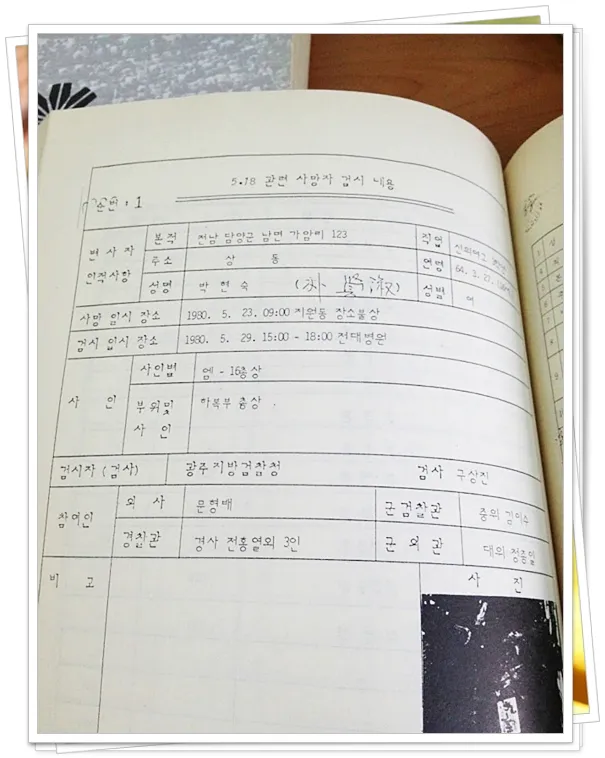 5.18 관련 사망자 검시 내용
순번 : 1
변사자 인적사항
본적 전남 담양군 남면 가암리 123 직업
주소 상동 연령 64. 3. 27.
성명 박현숙 (朴 淑) 성별 여
사망 일시 장소 1980. 5. 23. 09:00 지원동 장소불상
검시 일시 장소 1980. 5. 29. 15:00 - 18:00 전대병원
사인
사인별 엠 - 16총상
부위및 사인 하복부 총상
검시자 (검사) 광주지방검찰청 검사 구상진
참여인
의사 문형배 군검찰관 중위 김이수
경찰관 경사 전홍열외 3인 군의관 대위 정종일
비고 사진